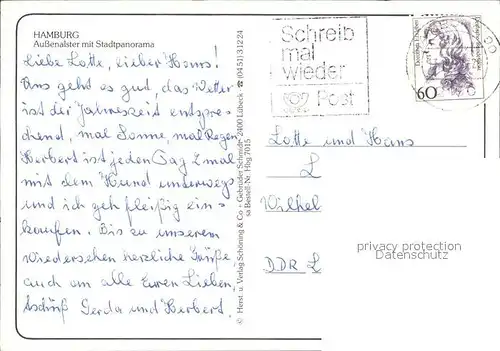 HAMBURG
Außenalster mit Stadtpanorama
Liebe Lotte, lieber Hans!
Uns geht es gut, das Wetter
ist der Jahreszeit entspre-
chend, mal Sonne, mal Regen
Herbert ist jeden Tag 2 mal
mit dem Hund unterwegs
und ich geh fleißig ein-
kaufen. Bis zu unserem
Wiedersehen herzliche Grüße
auch an alle Euren Lieben,
tschüß Gerda und Herbert.
© Herst. u. Verlag Schöning & Co · Gebrüder Schmidt · 2400 Lübeck ☎ (04 51) 3 12 24
sa Bestell-Nr. Hbg 7015
Schreib
mal
wieder
Post
60
Lotte und Hans
L
Wilhel
DDR L
privacy protection
Datenschutz